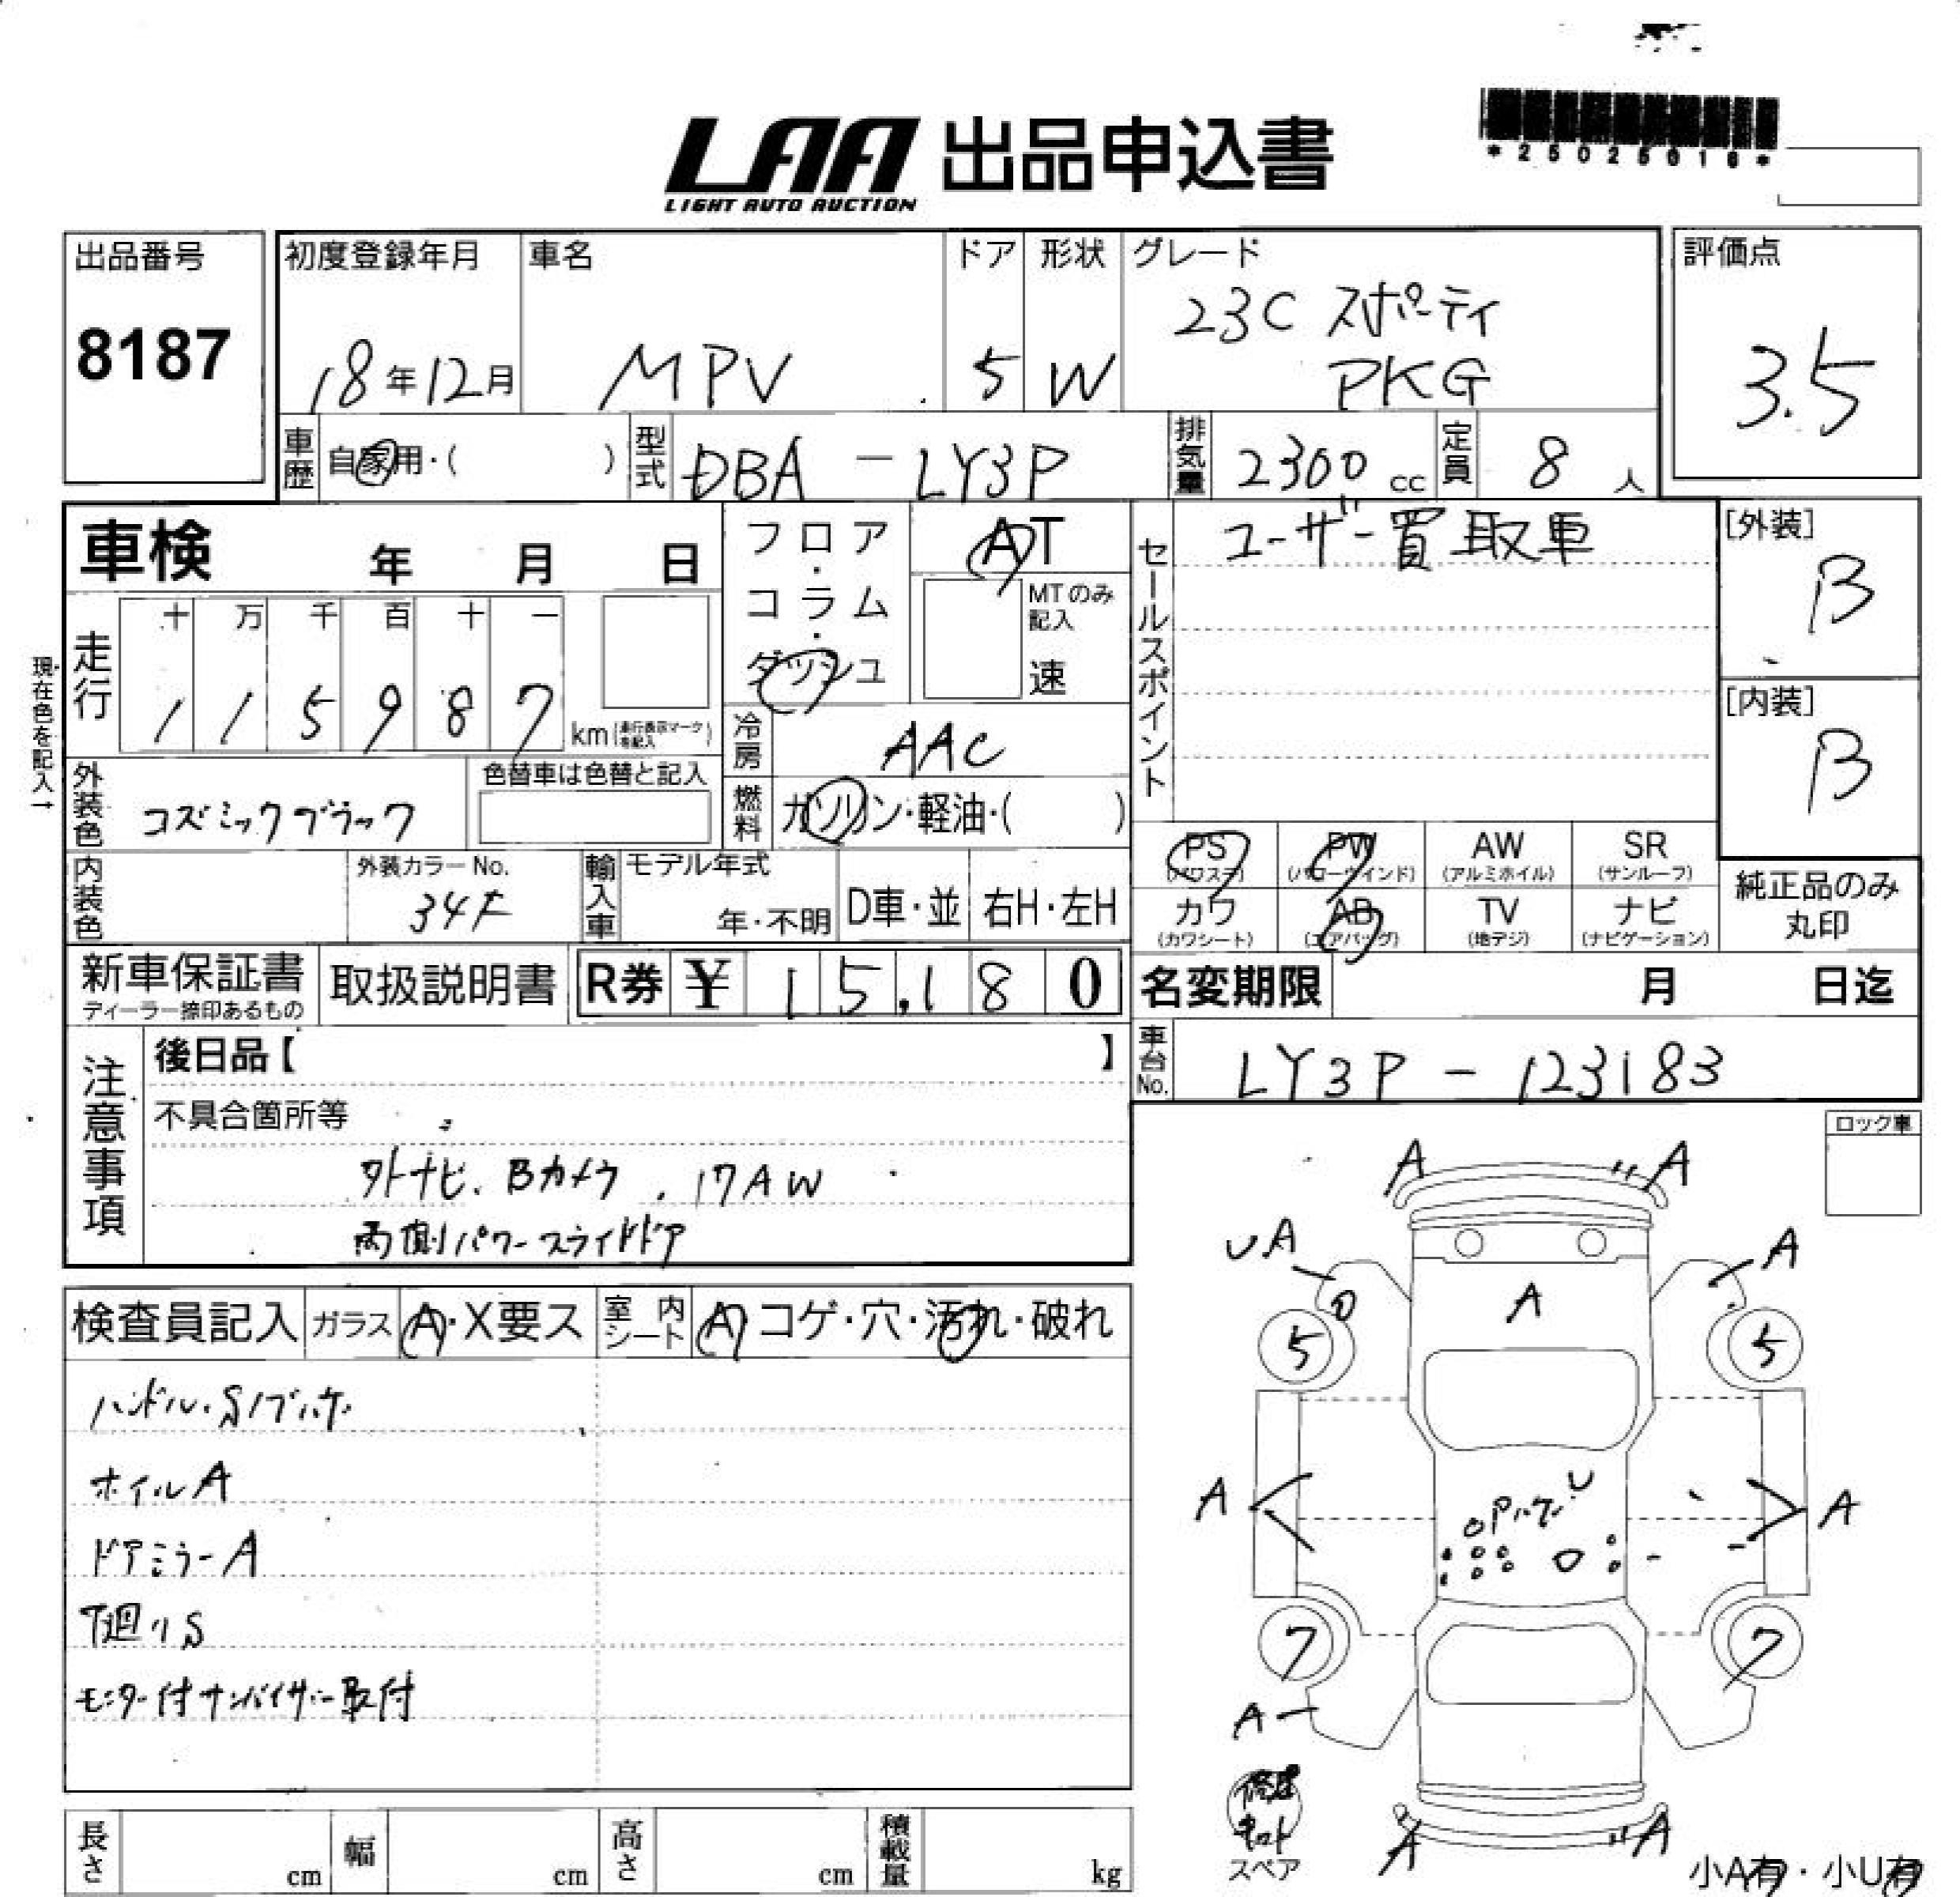 *25025016*
LAA 出品申込書
LIGHT AUTO AUCTION
出品番号
8187
初度登録年月
18年12月
車名
MPV
ドア
5
形状
W
グレード
23C スポーティ
PKG
評価点
3.5
車歴
自家用・( )
型式
DBA-LY3P
排気量
2300 cc
定員
8 人
車検 年 月 日
フロア・コラム・ダッシュ
AT
MTのみ記入
速
セールスポイント
ユーザー買取車
[外装]
B
[内装]
B
現在色を記入→
走行
十 万 千 百 十 一
1 1 5 9 8 7
km(走行表示マークを記入)
冷房
AAC
燃料
ガソリン・軽油・( )
外装色
コズミックブラック
色替車は色替と記入
内装色
外装カラーNo.
34K
輸入車
モデル年式
年・不明
D車・並
右H・左H
PS
(パワステ)
PW
(パワーウインド)
AW
(アルミホイル)
SR
(サンルーフ)
カワ
(カワシート)
AB
(エアバッグ)
TV
(地デジ)
ナビ
(ナビゲーション)
純正品のみ
丸印
新車保証書
ディーラー捺印あるもの
取扱説明書
R券 ¥ 15,180
名変期限 月 日迄
車台No.
LY3P-123183
注意事項
後日品【 】
不具合箇所等
外ナビ、Bカメラ、17AW
両側パワースライドドア
ロック車
検査員記入
ガラス
A・X要ス
室内シート
A コゲ・穴・汚れ・破れ
ハンドル・Sノブハゲ
ホイルA
ドアミラーA
下廻りS
モニター付サンバイザー取付
A
〃A
UA
A
A
5
5
A
U
Pハゲ
A
7
7
A
修理キット
スペア
A
〃A
長さ cm
幅 cm
高さ cm
積載量 kg
小A有・小U有